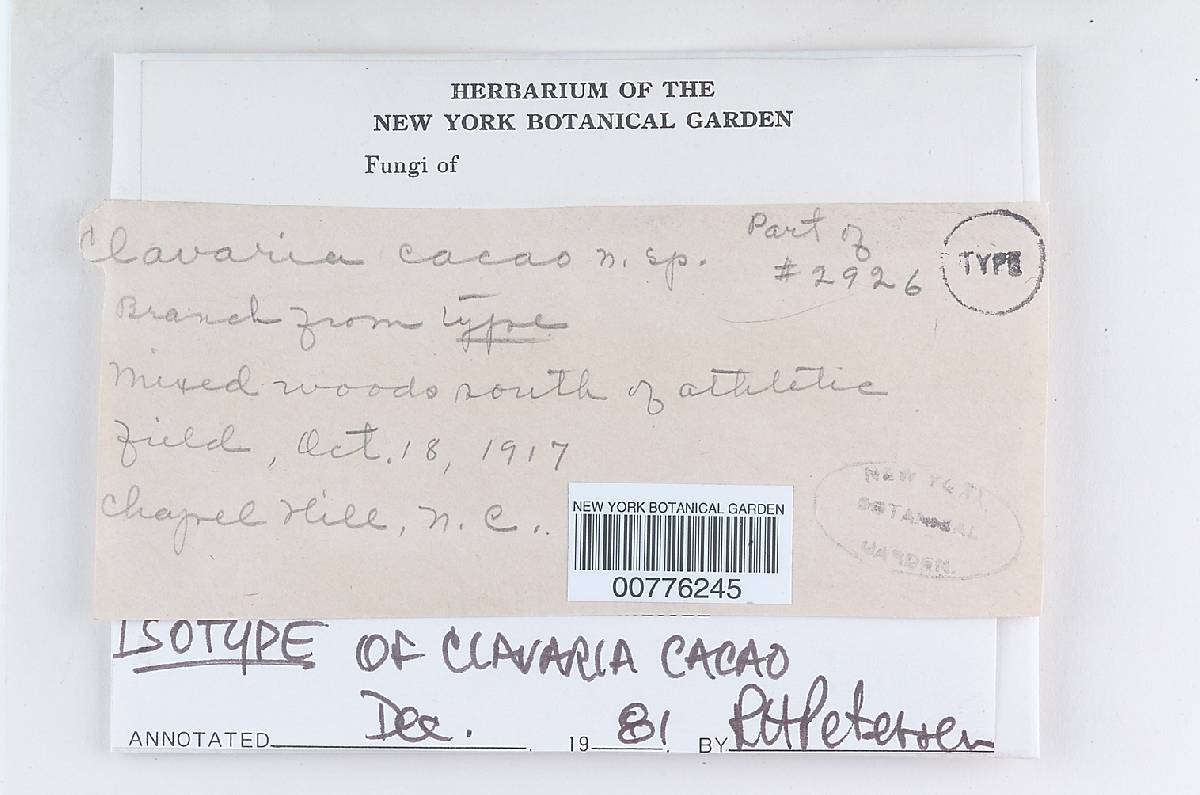 HERBARIUM OF THE
NEW YORK BOTANICAL GARDEN
Fungi of
Clavaria cacao n. sp.
Part of
#2926
TYPE
Branch from type
Mixed woods south of athletic
field, Oct. 18, 1917
Chapel Hill, N. C..
NEW YORK BOTANICAL GARDEN
00776245
NEW YORK
BOTANICAL
GARDEN.
ISOTYPE OF CLAVARIA CACAO
ANNOTATED Dec. 1981 BY RHPetersen